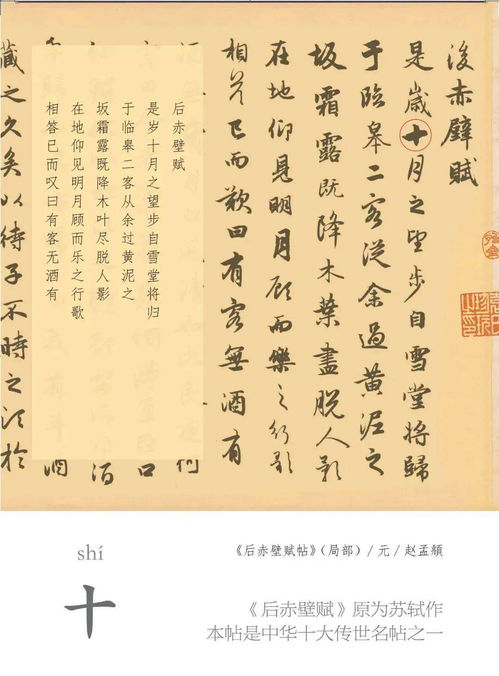 後赤壁賦
是歲十月之望步自雪堂將歸
于臨皋二客從余過黃泥之
坂霜露既降木葉盡脫人影
在地仰見明月顧而樂之行歌
相答已而歎曰有客無酒有
后赤壁赋
是岁十月之望步自雪堂将归
于临皋二客从余过黄泥之
坂霜露既降木叶尽脱人影
在地仰见明月顾而乐之行歌
相答已而叹曰有客无酒有
藏之久矣以待子不時之須於
shí
十
《后赤壁赋帖》(局部)/元/赵孟頫
《后赤壁赋》原为苏轼作
本帖是中华十大传世名帖之一